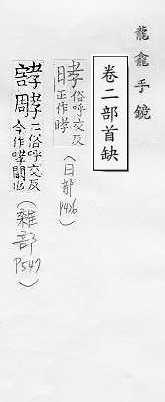 龍龕手鏡
卷二部首缺
𣇪俗呼交反
正作哮
(日部P426)
二俗呼交反
今作哮闞也
(雜部P547)